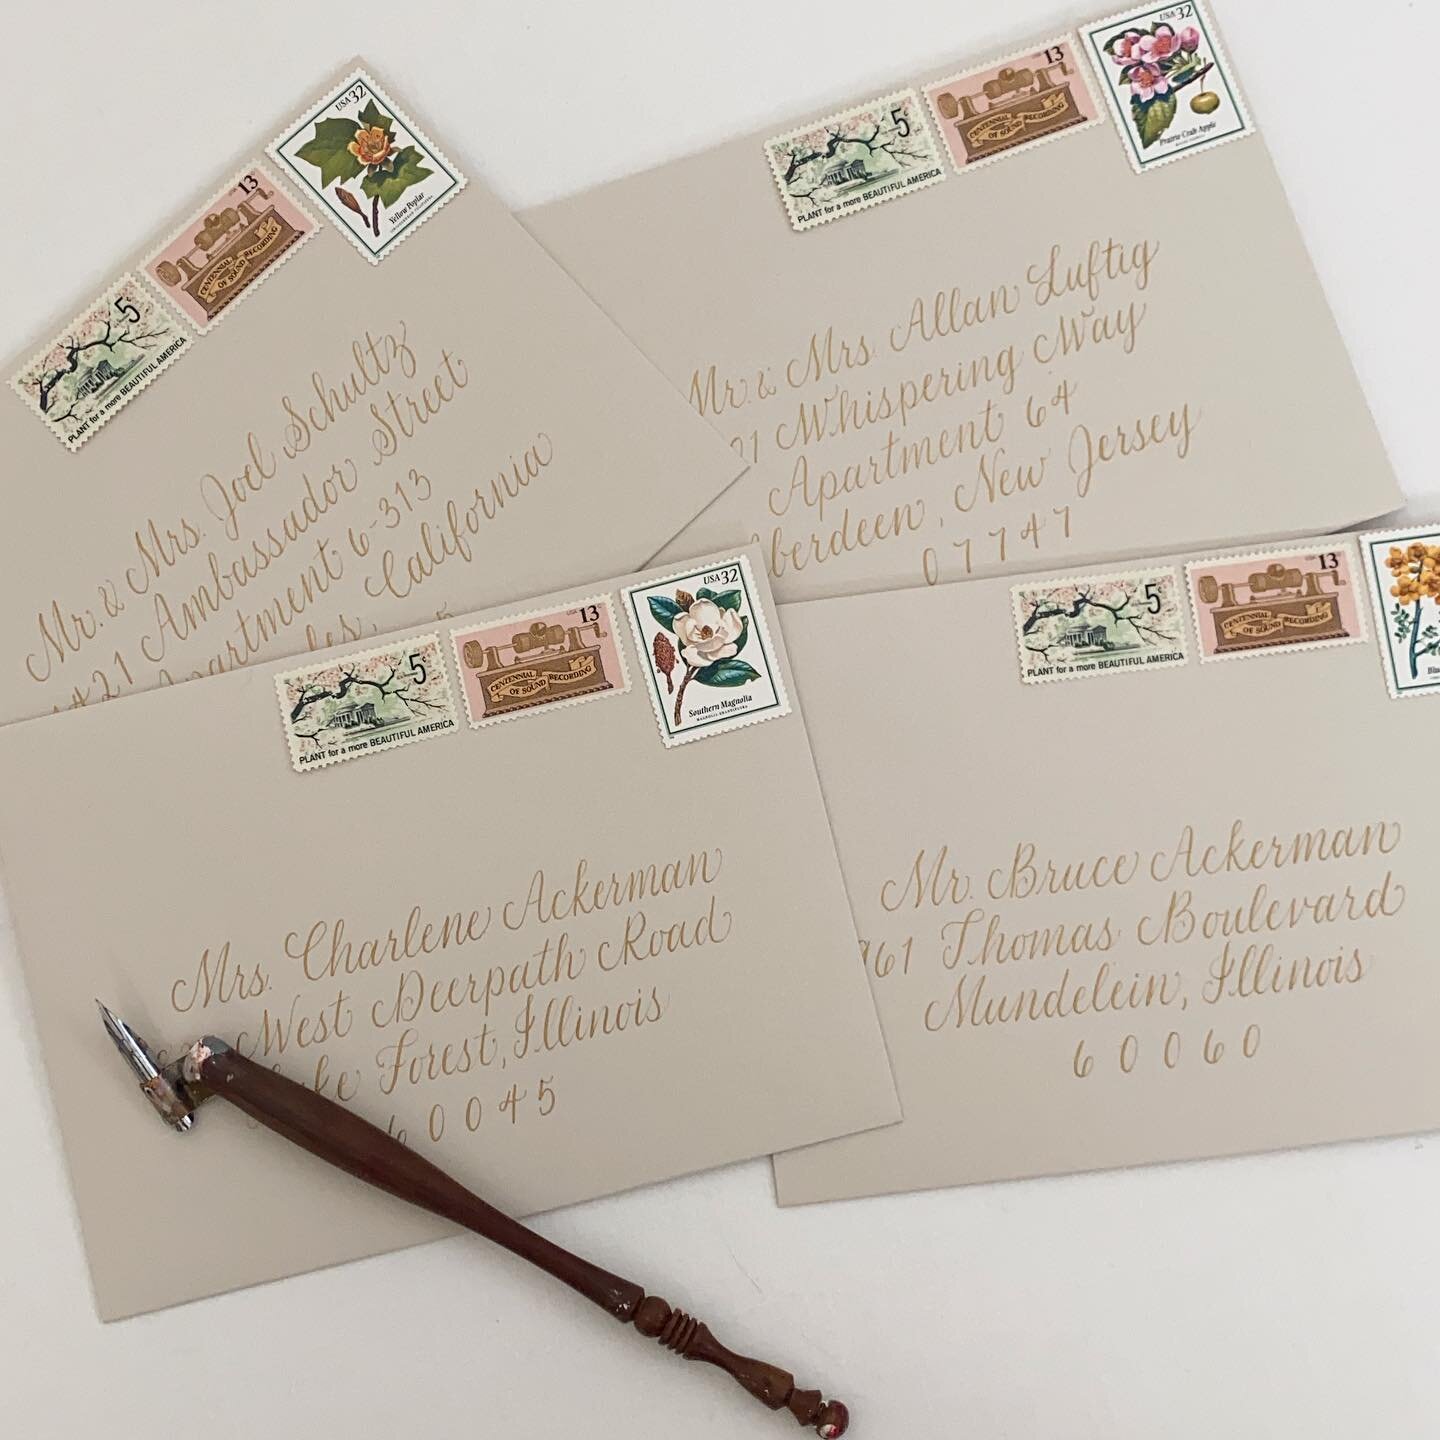 USA 32
Yellow Poplar
USA 13
CENTENNIAL
OF SOUND RECORDING
5
PLANT for a more BEAUTIFUL AMERICA
Mr. & Mrs. Joel Schultz
1421 Ambassador Street
Apartment 6-313
California
USA 32
Prairie Crab Apple
13
CENTENNIAL
OF SOUND RECORDING
5
PLANT for a more BEAUTIFUL AMERICA
Mr. & Mrs. Allan Luftig
21 Whispering Way
Apartment 64
berdeen, New Jersey
07747
USA 32
Southern Magnolia
MAGNOLIA GRANDIFLORA
USA 13
CENTENNIAL
OF SOUND RECORDING
5
PLANT for a more BEAUTIFUL AMERICA
Mrs. Charlene Ackerman
West Deerpath Road
ke Forest, Illinois
60045
USA 13
CENTENNIAL
OF SOUND RECORDING
5
PLANT for a more BEAUTIFUL AMERICA
Mr. Bruce Ackerman
961 Thomas Boulevard
Mundelein, Illinois
60060